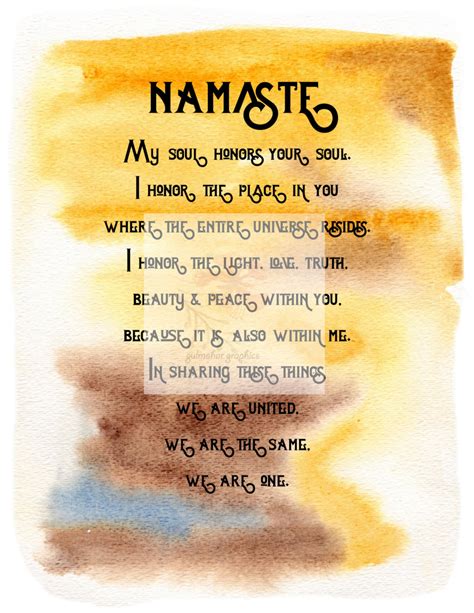 NAMASTE
My soul honors your soul.
I honor the place in you
where the entire universe resides.
I honor the light, love, truth,
beauty & peace within you,
because it is also within me.
gulmohar graphics
In sharing these things
we are united,
we are the same,
we are one.